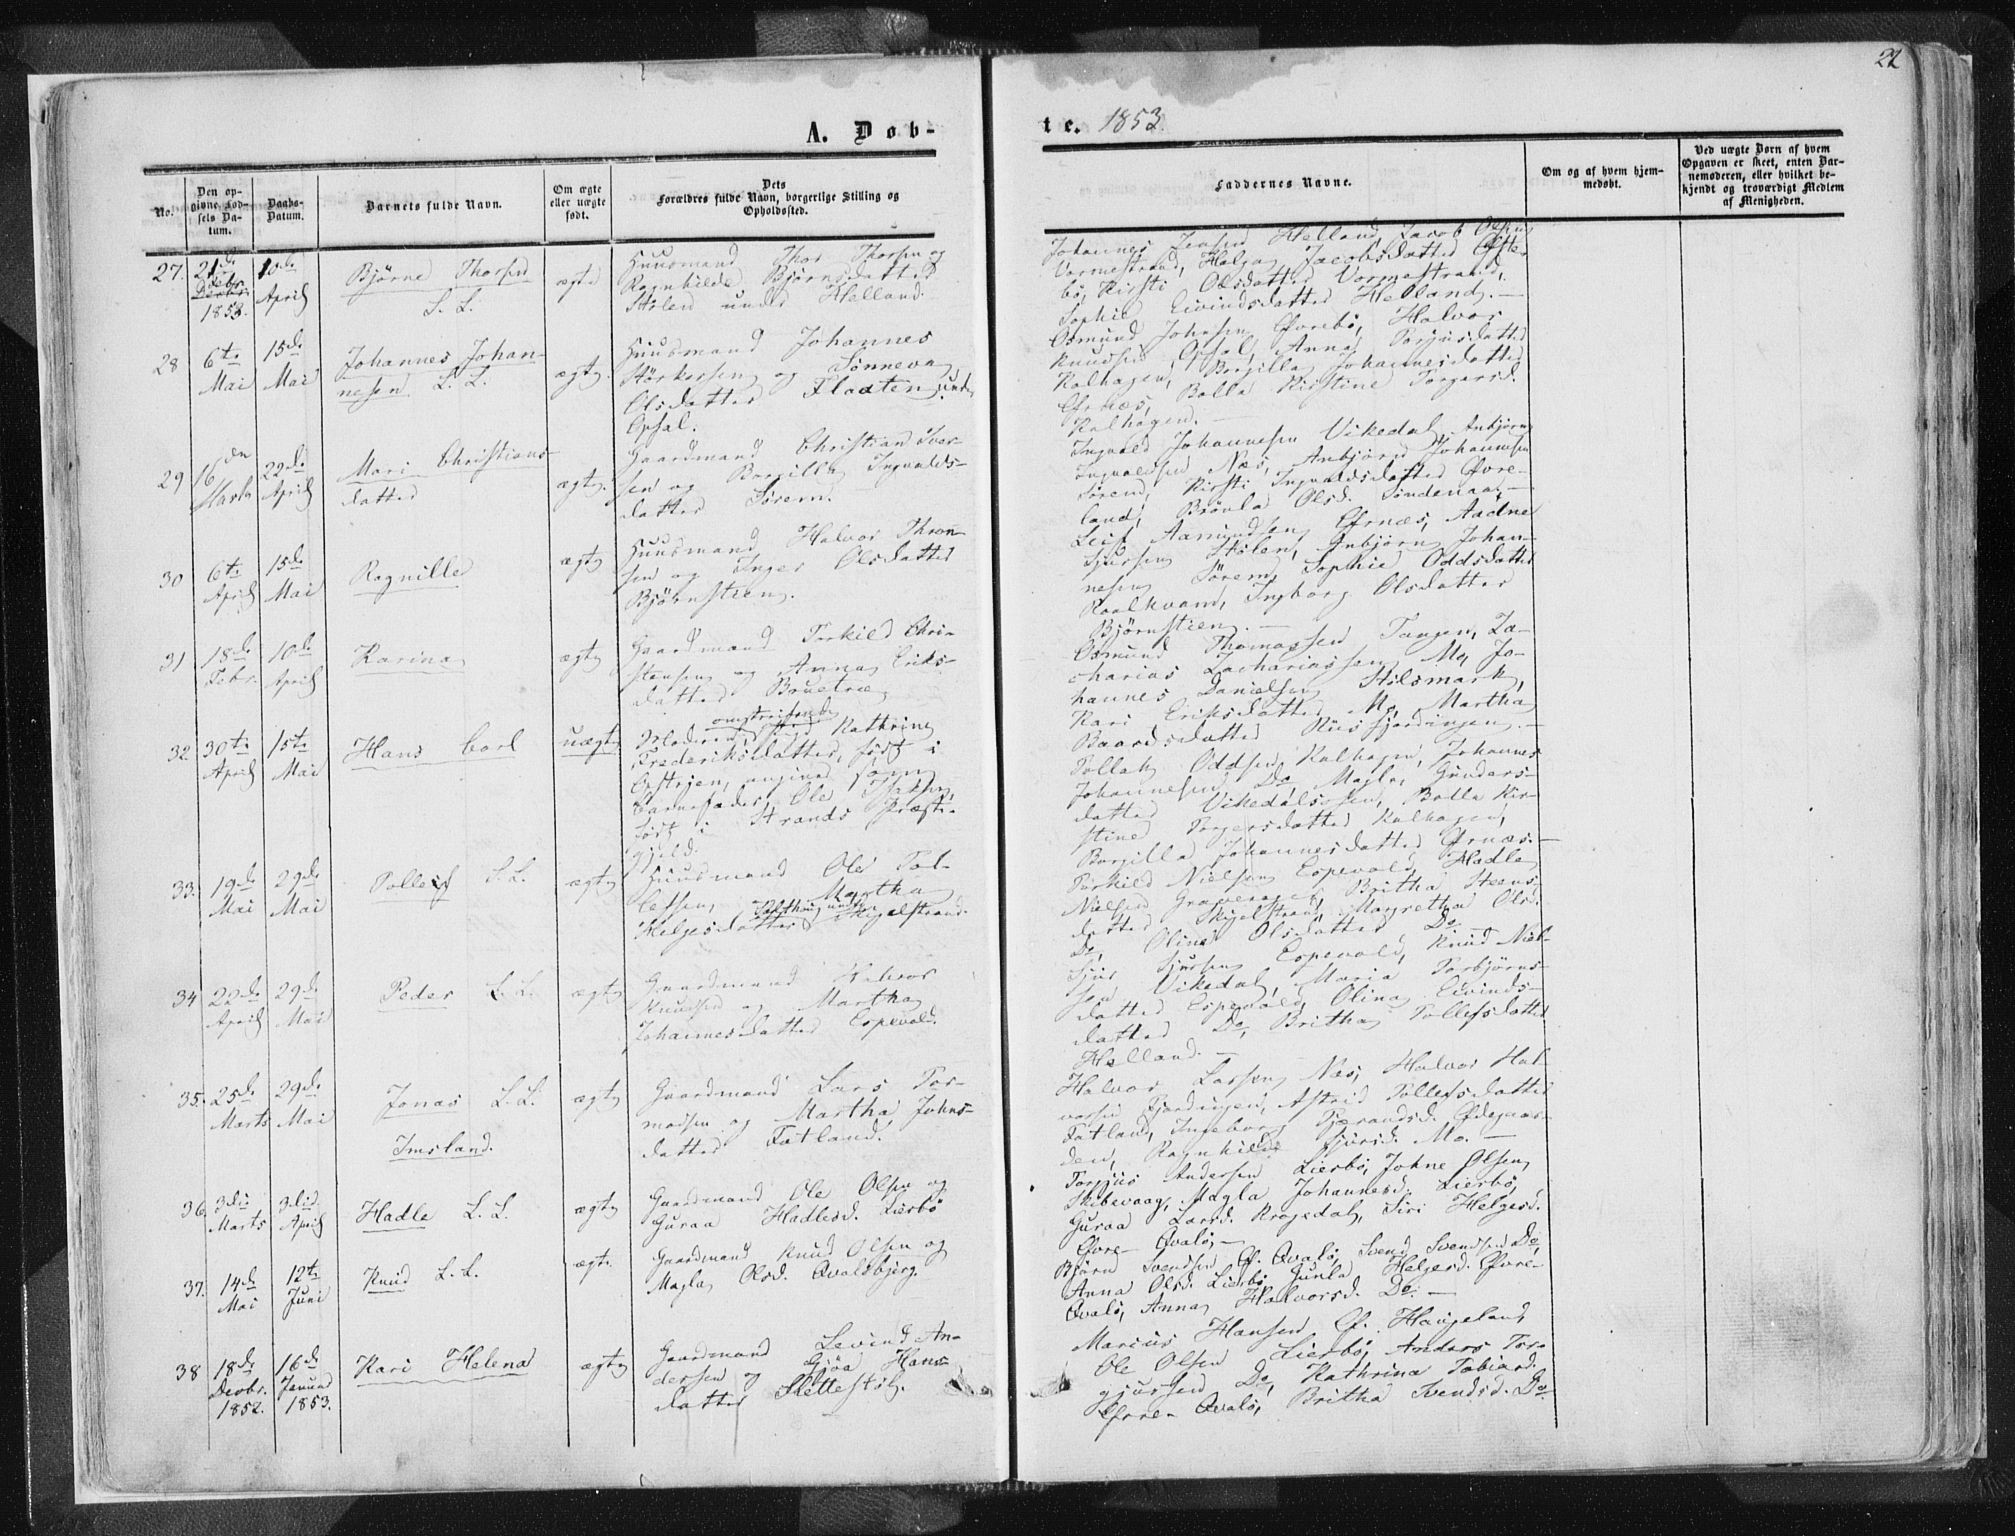 22
A. Døb-
te. 1853.
No.
Den op-
givne Fød-
sels Da-
tum.
Daabs-
Datum.
Barnets fulde Navn.
Om ægte
eller uægte
født.
Dets
Forældres fulde Navn, borgerlige Stilling og
Opholdssted.
Faddernes Navne.
Om og af hvem hjem-
medøbt.
Ved uægte Børn af hvem
Opgaven er skeet, enten Bar-
nemoderen, eller hvilket be-
kjendt og troværdigt Medlem
af Menigheden.
27.
21de
Febr.
1853.
10de
April
Bjørne Thorsen
L. L.
ægte
Huusmand Thor Thorsen og
Ragnhilde Bjørnsdatter
Stølen under Helland.
Johannes Jensen Helland, Jacob Olsen
Vormestrand, Helga Jacobsdatter Øfste-
bø, Kirsti Olsdatter Vormestrand,
Sophie Eivindsdatter Helland. —
28
6te
Mai
15de
Mai
Johannes Johan-
nesen L. L.
ægte
Huusmand Johannes
Størkersen og Sønneva
Olsdatter Flaaten und.
Opsal.
Osmund Johnsen Øvrebø, Halvor
Knudsen Opsal, Anna Torjusdatter
Kalhagen, Borgilla Johannesdatter
Ørnæs, Bolla Kirstine Torgersd.
Kalhagen. —
29
16den
Marts
22de
April
Mari Christians-
datter
ægte.
Gaardmand Christian Iver-
sen og Borgilla Ingvalds-
datter Sørem.
Ingvald Johannesen Vikedal, Anbjørn
Ingvaldsen Næs, Anbjørn Johannesen
Sørem, Kirsti Ingvaldsdatter Øvre-
land, Brøvla Olsd. Søndenaa. —
30
6te
April
15de
Mai
Ragnille
ægte
Huusmand Halvor Thron-
sen og Inger Olsdatter
Bjørnstien.
Leif Aamundsen Ørnæs, Aadne
Sjursen Stølen, Anbjørn Johan-
nesen Sørem, Sophie Oddsdatter
Raalkvam, Ingborg Olsdatter
Bjørnstien. —
31
18de
Febr.
10de
April
Karina
ægte
Gaardmand Torkild Chri-
stensen og Anna Eriks-
datter Bruetræ
Osmund Thomassen Tangen, Za-
charias Zachariassen Mo, Jo-
hannes Danielsen Stilsmark,
Kari Eriksdatter Mo, Martha
Baardsdatter Riisfjordingen. —
32
30te
April
15te
Mai
Hans Carl
uægte
Moderen omstreifende Kathrine
Frederiksdatter, født i
Opstryen, angiver som
Barnefader Ole Isaksen,
født i Strands Præste-
gjeld.
Tollak Oddsen Kalhagen, Johannes
Johannesen Do, Magla Gunders-
datter Vikedalsosen, Bolla Kir-
stine Torgersdatter Kalhagen,
Borgilla Johannesdatter Ørnæs. —
33.
19de
Mai
29de
Mai
Tollef L. L.
ægte
Huusmand Ole Tol-
lefsen, Martha
Helgesdatter under Skjelstrand.
Torkild Nielsen Espevold, Hadle
Nielsen, Britha Steens-
datter Skjelstrand, Margretha Olsd.
Do, Olina Olsdatter Do.
34
22de
April
29de
Mai
Peder L. L.
ægte
Gaardmand Halvor
Knudsen og Martha
Johannesdatter Espevold.
Sjur Sjursen Espevold, Knud Niel-
sen Vikedal, Maria Torbjørns-
datter Espevold, Olina Eivinds-
datter Do, Britha Tollefsdatter
Helland. —
35.
25de
Marts
29de
Mai
Jonas L. L.
Imsland.
ægte
Gaardmand Lars Tor-
modsen og Martha Johns-
datter Fatland.
Halvor Larsen Næs, Halvor Hal-
vorsen Fjordingen, Astrid Tollefsdatter
Fatland, Ingeborg Tjerandsd. Ødegaar-
den, Ragnhilde Sjursd. Mo. —
36.
3die
Marts
3die
April
Hadle L. L.
ægte
Gaardmand Ole Olsen og
Guraa Hadlesd. Lierbø
Torgjus Andersen Lierbø, Johne Olsen
Skibevaag, Magla Johannesd. Lierbø,
Guraa Larsd. Krogedal, Siri Helgesd.
Øvre- Qvalø. —
37.
14de
Mai
12te
Juni
Knud L. L.
ægte.
Gaardmand Knud Olsen og
Magla Olsd. Qvalsbjerg.
Bjørn Svendsen Ø. Qvalø, Svend Svendsen Do,
Anna Olsd. Lierbø, Gunla Helgesd. Øvre-
Qvalø, Anna Halvorsd. Do. —
38
18de
Decbr.
1852.
16de
Januar
1853.
Kari Helena
ægte
Gaardmand Levind An-
dersen og Gjøa Hans-
datter Slettestøl.
Marius Hansen Ø. Haugeland,
Ole Olsen Lierbø, Anders Tor-
gjussen Do, Kathrina Tobiasd.
Øvre- Qvalø, Britha Svendsd. Do